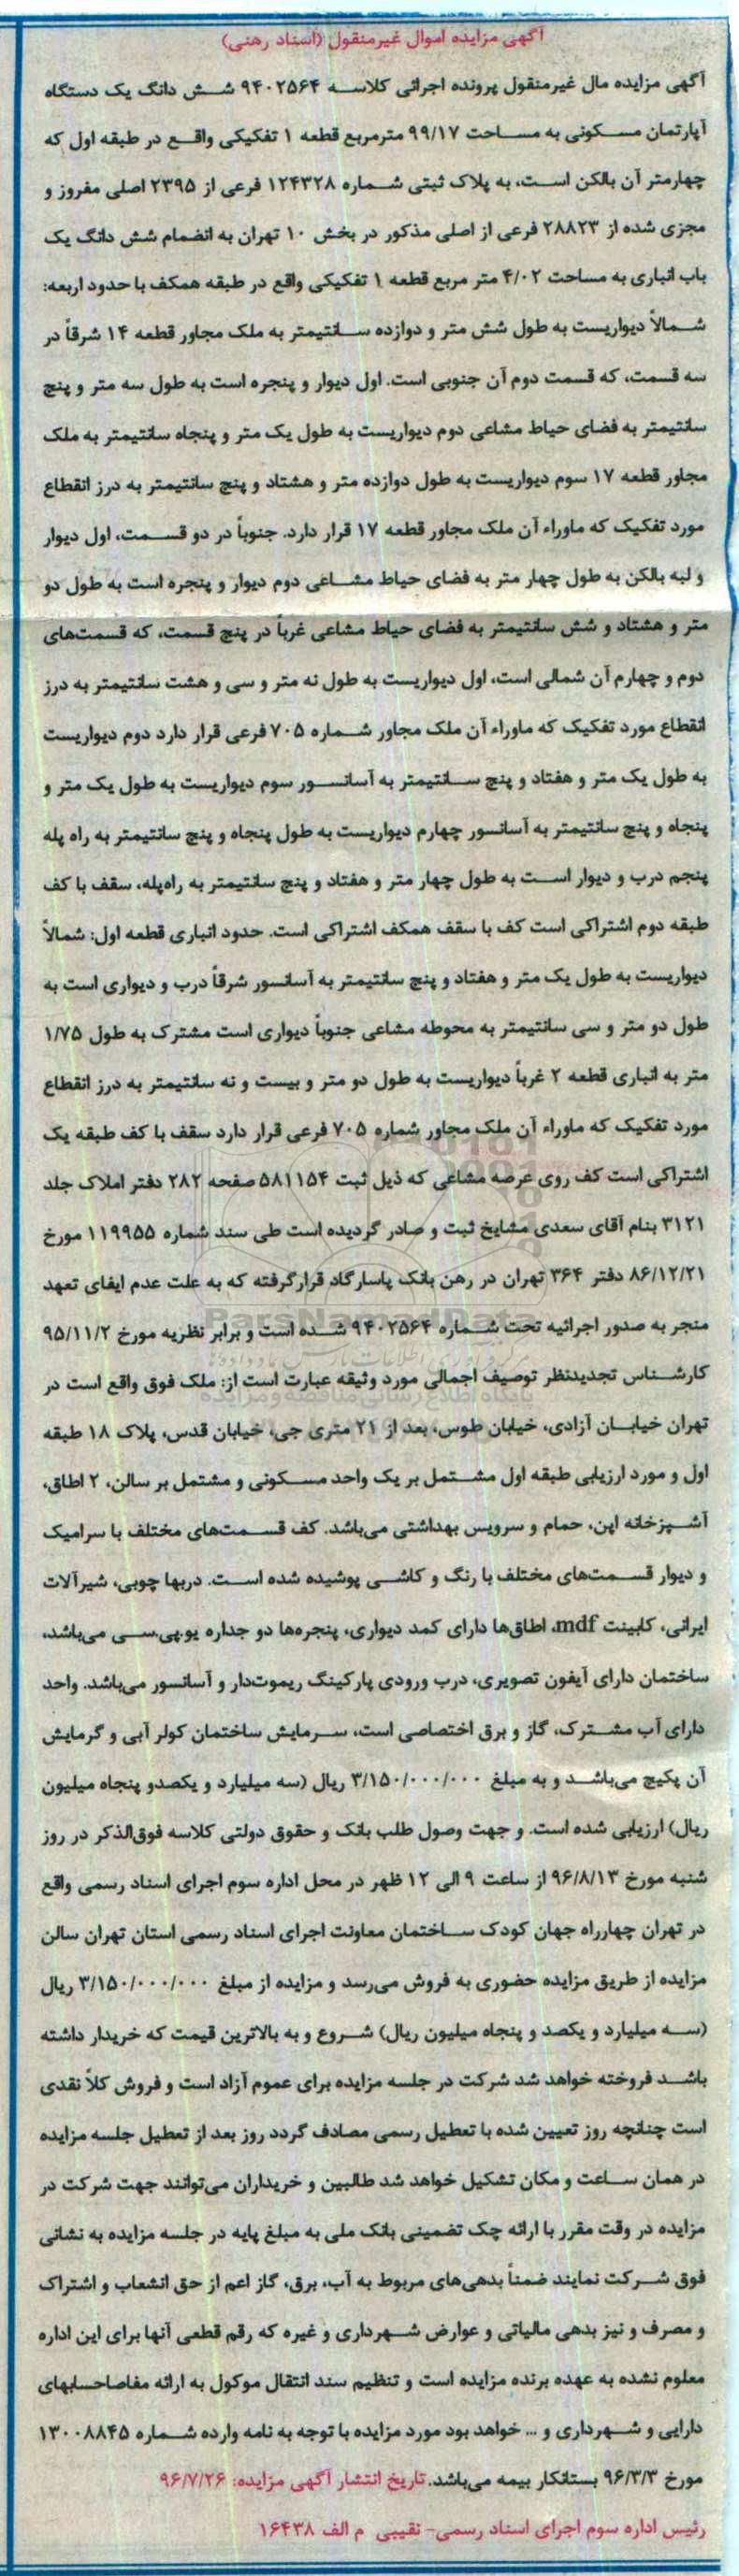 آگهی مزایده اموال غیرمنقول (اسناد رهنی)
آگهی مزایده مال غیرمنقول پرونده اجرائی کلاسه ۹۴۰۲۵۶۴ شش دانگ یک دستگاه
آپارتمان مسکونی به مساحت ۹۹/۱۷ مترمربع قطعه ۱ تفکیکی واقع در طبقه اول که
چهارمتر آن بالکن است، به پلاک ثبتی شماره ۱۲۴۳۲۸ فرعی از ۲۳۹۵ اصلی مفروز و
مجزی شده از ۲۸۸۲۳ فرعی از اصلی مذکور در بخش ۱۰ تهران به انضمام شش دانگ یک
باب انباری به مساحت ۴/۰۲ متر مربع قطعه ۱ تفکیکی واقع در طبقه همکف با حدود اربعه:
شمالاً دیواریست به طول شش متر و دوازده سانتیمتر به ملک مجاور قطعه ۱۴ شرقاً در
سه قسمت، که قسمت دوم آن جنوبی است. اول دیوار و پنجره است به طول سه متر و پنج
سانتیمتر به فضای حیاط مشاعی دوم دیواریست به طول یک متر و پنجاه سانتیمتر به ملک
مجاور قطعه ۱۷ سوم دیواریست به طول دوازده متر و هشتاد و پنج سانتیمتر به درز انقطاع
مورد تفکیک که ماوراء آن ملک مجاور قطعه ۱۷ قرار دارد. جنوباً در دو قسمت، اول دیوار
و لبه بالکن به طول چهار متر به فضای حیاط مشاعی دوم دیوار و پنجره است به طول دو
متر و هشتاد و شش سانتیمتر به فضای حیاط مشاعی غرباً در پنج قسمت، که قسمت‌های
دوم و چهارم آن شمالی است، اول دیواریست به طول نه متر و سی و هشت سانتیمتر به درز
انقطاع مورد تفکیک که ماوراء آن ملک مجاور شماره ۷۰۵ فرعی قرار دارد دوم دیواریست
به طول یک متر و هفتاد و پنج سانتیمتر به آسانسور سوم دیواریست به طول یک متر و
پنجاه و پنج سانتیمتر به آسانسور چهارم دیواریست به طول پنجاه و پنج سانتیمتر به راه پله
پنجم درب و دیوار است به طول چهار متر و هفتاد و پنج سانتیمتر به راه‌پله، سقف با کف
طبقه دوم اشتراکی است کف با سقف همکف اشتراکی است. حدود انباری قطعه اول: شمالاً
دیواریست به طول یک متر و هفتاد و پنج سانتیمتر به آسانسور شرقاً درب و دیواری است به
طول دو متر و سی سانتیمتر به محوطه مشاعی جنوباً دیواری است مشترک به طول ۱/۷۵
متر به انباری قطعه ۲ غرباً دیواریست به طول دو متر و بیست و نه سانتیمتر به درز انقطاع
مورد تفکیک که ماوراء آن ملک مجاور شماره ۷۰۵ فرعی قرار دارد سقف با کف طبقه یک
اشتراکی است کف روی عرصه مشاعی که ذیل ثبت ۵۸۱۱۵۴ صفحه ۲۸۲ دفتر املاک جلد
۳۱۲۱ بنام آقای سعدی مشایخ ثبت و صادر گردیده است طی سند شماره ۱۱۹۹۵۵ مورخ
۸۶/۱۲/۲۱ دفتر ۳۶۴ تهران در رهن بانک پاسارگاد قرارگرفته که به علت عدم ایفای تعهد
منجر به صدور اجرائیه تحت شماره ۹۴۰۲۵۶۴ شده است و برابر نظریه مورخ ۹۵/۱۱/۲
کارشناس تجدیدنظر توصیف اجمالی مورد وثیقه عبارت است از: ملک فوق واقع است در
تهران خیابان آزادی، خیابان طوس، بعد از ۲۱ متری جی، خیابان قدس، پلاک ۱۸ طبقه
اول و مورد ارزیابی طبقه اول مشتمل بر یک واحد مسکونی و مشتمل بر سالن، ۲ اطاق،
آشپزخانه اپن، حمام و سرویس بهداشتی می‌باشد. کف قسمت‌های مختلف با سرامیک
و دیوار قسمت‌های مختلف با رنگ و کاشی پوشیده شده است. دربها چوبی، شیرآلات
ایرانی، کابینت mdf، اطاق‌ها دارای کمد دیواری، پنجره‌ها دو جداره یو.پی.سی می‌باشد،
ساختمان دارای آیفون تصویری، درب ورودی پارکینگ ریموت‌دار و آسانسور می‌باشد. واحد
دارای آب مشترک، گاز و برق اختصاصی است، سرمایش ساختمان کولر آبی و گرمایش
آن پکیج می‌باشد و به مبلغ ۳/۱۵۰/۰۰۰/۰۰۰ ریال (سه میلیارد و یکصدو پنجاه میلیون
ریال) ارزیابی شده است. و جهت وصول طلب بانک و حقوق دولتی کلاسه فوق‌الذکر در روز
شنبه مورخ ۹۶/۸/۱۳ از ساعت ۹ الی ۱۲ ظهر در محل اداره سوم اجرای اسناد رسمی واقع
در تهران چهارراه جهان کودک ساختمان معاونت اجرای اسناد رسمی استان تهران سالن
مزایده از طریق مزایده حضوری به فروش می‌رسد و مزایده از مبلغ ۳/۱۵۰/۰۰۰/۰۰۰ ریال
(سه میلیارد و یکصد و پنجاه میلیون ریال) شروع و به بالاترین قیمت که خریدار داشته
باشد فروخته خواهد شد شرکت در جلسه مزایده برای عموم آزاد است و فروش کلاً نقدی
است چنانچه روز تعیین شده با تعطیل رسمی مصادف گردد روز بعد از تعطیل جلسه مزایده
در همان ساعت و مکان تشکیل خواهد شد طالبین و خریداران می‌توانند جهت شرکت در
مزایده در وقت مقرر با ارائه چک تضمینی بانک ملی به مبلغ پایه در جلسه مزایده به نشانی
فوق شرکت نمایند ضمناً بدهی‌های مربوط به آب، برق، گاز اعم از حق انشعاب و اشتراک
و مصرف و نیز بدهی مالیاتی و عوارض شهرداری و غیره که رقم قطعی آنها برای این اداره
معلوم نشده به عهده برنده مزایده است و تنظیم سند انتقال موکول به ارائه مفاصاحسابهای
دارایی و شهرداری و ... خواهد بود مورد مزایده با توجه به نامه وارده شماره ۱۳۰۰۸۸۴۵
مورخ ۹۶/۳/۳ بستانکار بیمه می‌باشد. تاریخ انتشار آگهی مزایده: ۹۶/۷/۲۶
رئیس اداره سوم اجرای اسناد رسمی- نقیبی م الف ۱۶۴۳۸